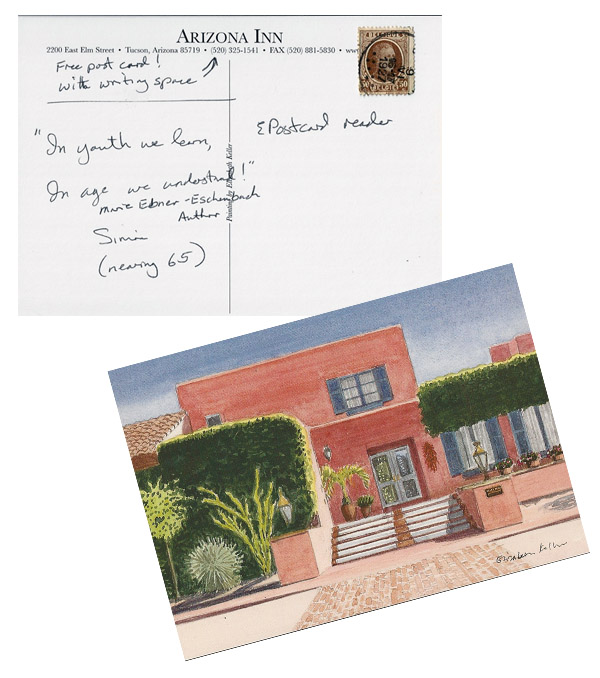 ARIZONA INN
2200 East Elm Street • Tucson, Arizona 85719 • (520) 325-1541 • FAX (520) 881-5830 • ww
Free post card!
with writing space
"In youth we learn,
In age we understand!"
Marie Ebner-Eschenbach
Author
Simi
(nearing 65)
Painting by Elizabeth Keller
Postcard reader